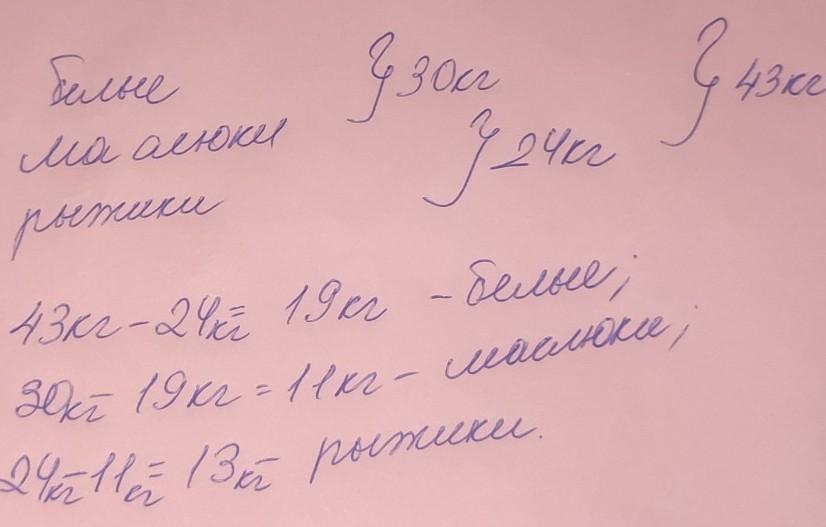 белые } 30кг } 43кг
маслюки } 24кг
рыжики
43кг - 24кг = 19кг - белые;
30кг - 19кг = 11кг - маслюки;
24кг - 11кг = 13кг - рыжики.